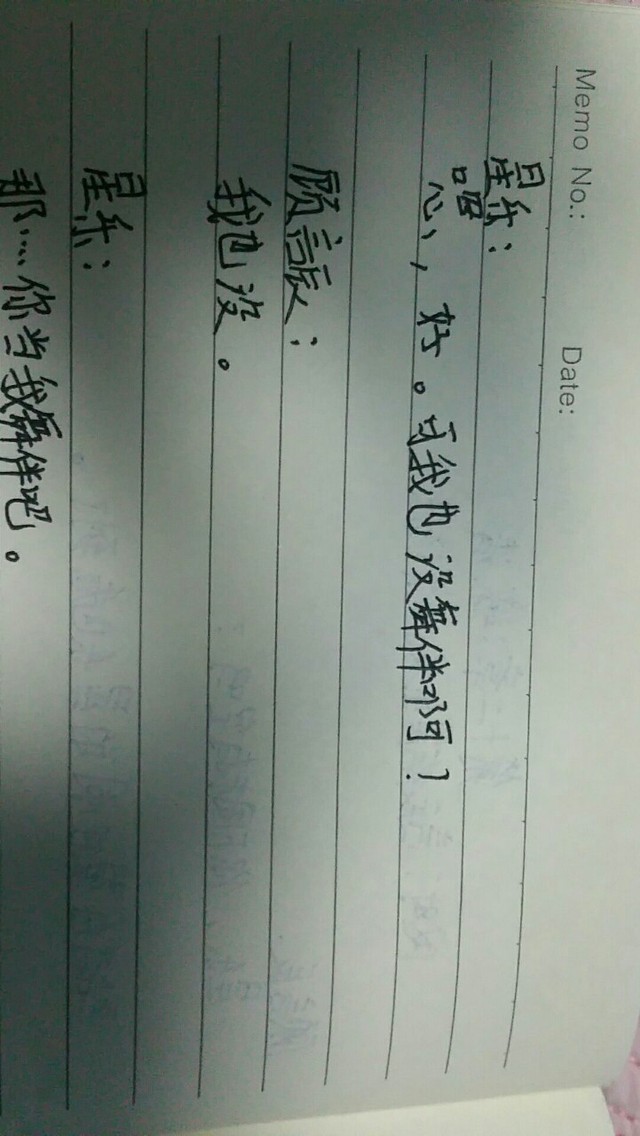 Memo No.: Date:
星乐：
嗯，好。可我也没舞伴啊？
顾言辰：
我也没。
星乐：
那……你当我舞伴吧。